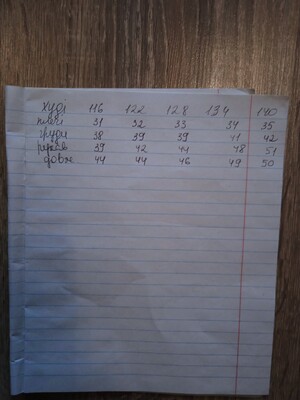 худі 116 122 128 134 140
плечі 31 32 33 34 35
груди 38 39 39 41 42
рукав 39 42 44 48 51
довж 44 44 46 49 50